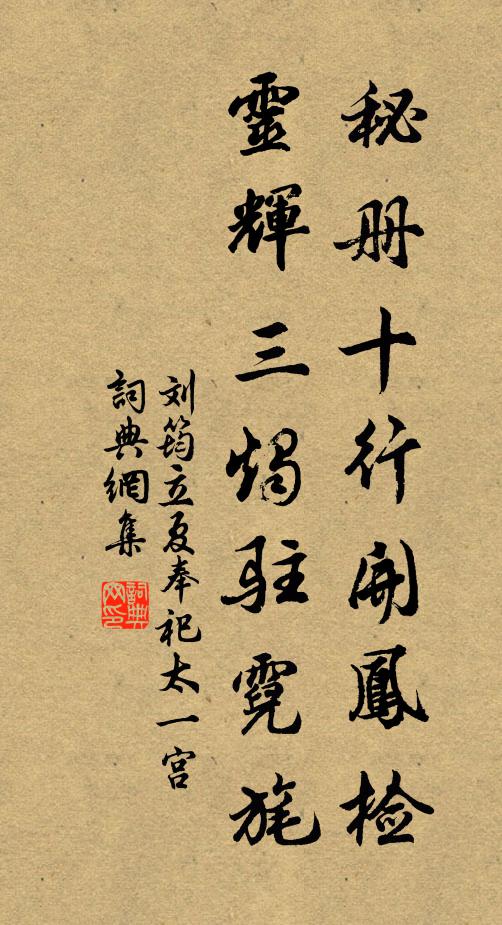 秘册十行開鳳檢
靈輝三燭駐霓旄
刘筠立夏奉祀太一宫
詞典網集
詞典網印